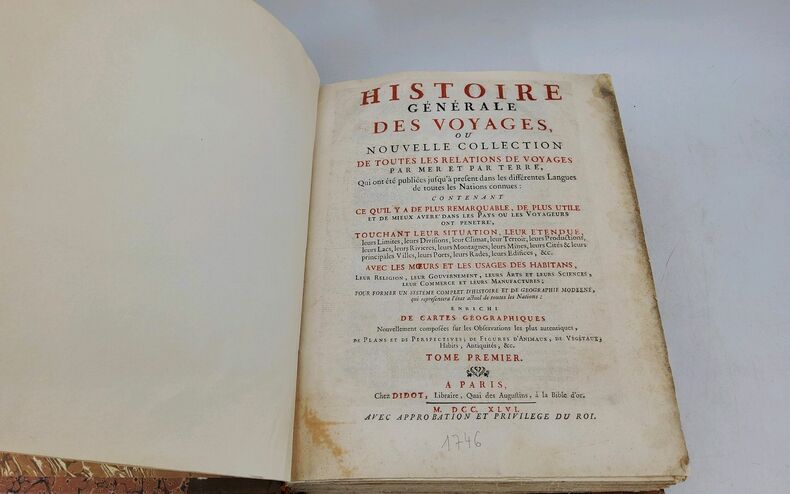 HISTOIRE
GÉNÉRALE
DES VOYAGES,
OU
NOUVELLE COLLECTION
DE TOUTES LES RELATIONS DE VOYAGES
PAR MER ET PAR TERRE,
Qui ont été publiées jusqu'à present dans les différentes Langues
de toutes les Nations connues:
CONTENANT
CE QU'IL Y A DE PLUS REMARQUABLE, DE PLUS UTILE
ET DE MIEUX AVERE' DANS LES PAYS OU LES VOYAGEURS
ONT PENETRE',
TOUCHANT LEUR SITUATION, LEUR ETENDUE,
leurs Limites, leurs Divisions, leur Climat, leur Terroir, leurs Productions,
leurs Lacs, leurs Rivieres, leurs Montagnes, leurs Mines, leurs Cités & leurs
principales Villes, leurs Ports, leurs Rades, leurs Edifices, &c.
AVEC LES MŒURS ET LES USAGES DES HABITANS,
LEUR RELIGION, LEUR GOUVERNEMENT, LEURS ARTS ET LEURS SCIENCES,
LEUR COMMERCE ET LEURS MANUFACTURES;
POUR FORMER UN SYSTEME COMPLET D'HISTOIRE ET DE GEOGRAPHIE MODERNE,
qui representera l'état actuel de toutes les Nations:
ENRICHI
DE CARTES GÉOGRAPHIQUES
Nouvellement composées sur les Observations les plus autentiques,
DE PLANS ET DE PERSPECTIVES; DE FIGURES D'ANIMAUX, DE VÉGÉTAUX,
Habits, Antiquités, &c.
TOME PREMIER.
A PARIS,
Chez DIDOT, Libraire, Quai des Augustins, à la Bible d'or.
M. DCC. XLVI.
AVEC APPROBATION ET PRIVILEGE DU ROI.
1746